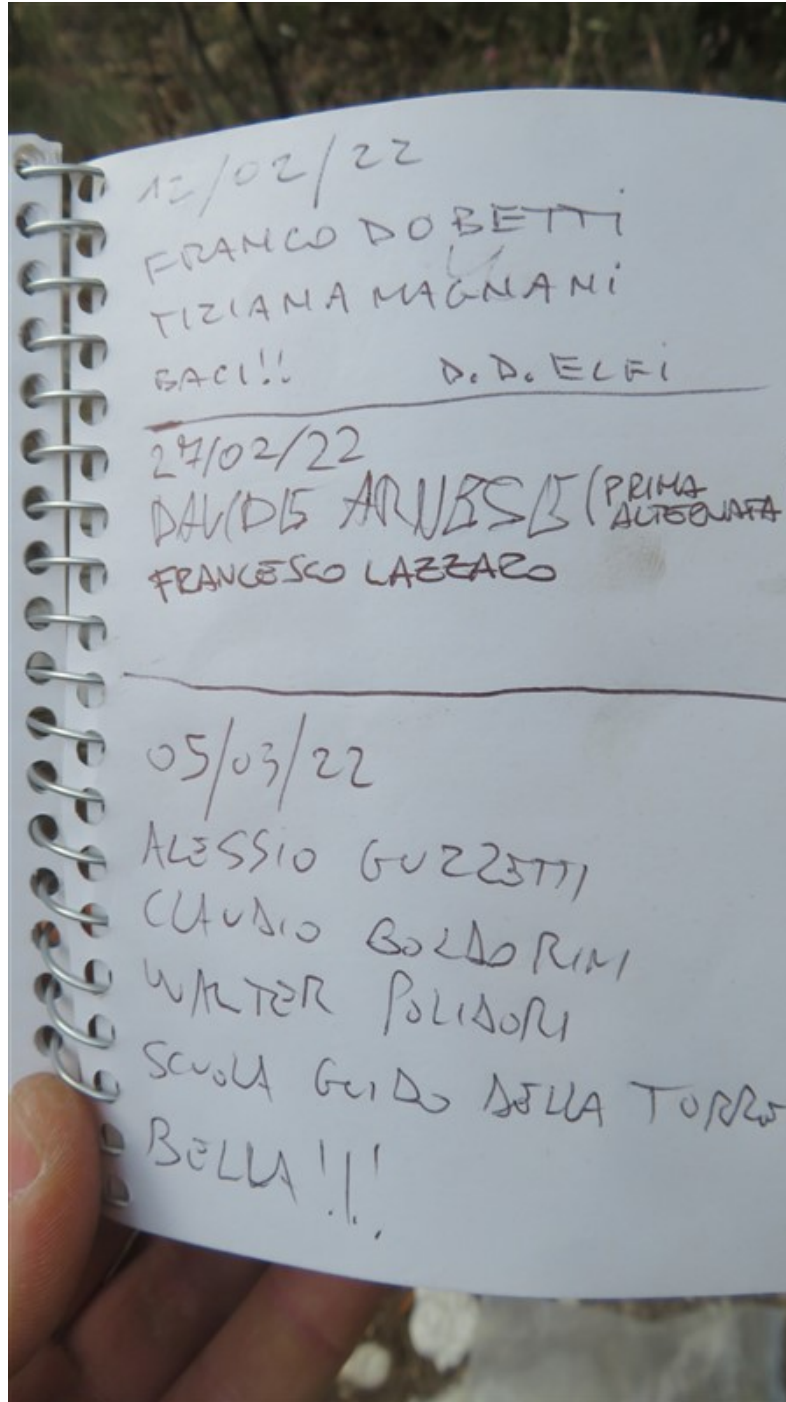 12/02/22
FRANCO DOBETTI
TIZIANA MAGNANI
BACI!! D.D. ELFI
27/02/22
DAVIDE ARNESE (PRIMA
ALTERNATA
FRANCESCO LAZZARO
05/03/22
ALESSIO GUZZETTI
CLAUDIO BOLDORINI
WALTER POLIDORI
SCUOLA GUIDO DELLA TORRE
BELLA!!!